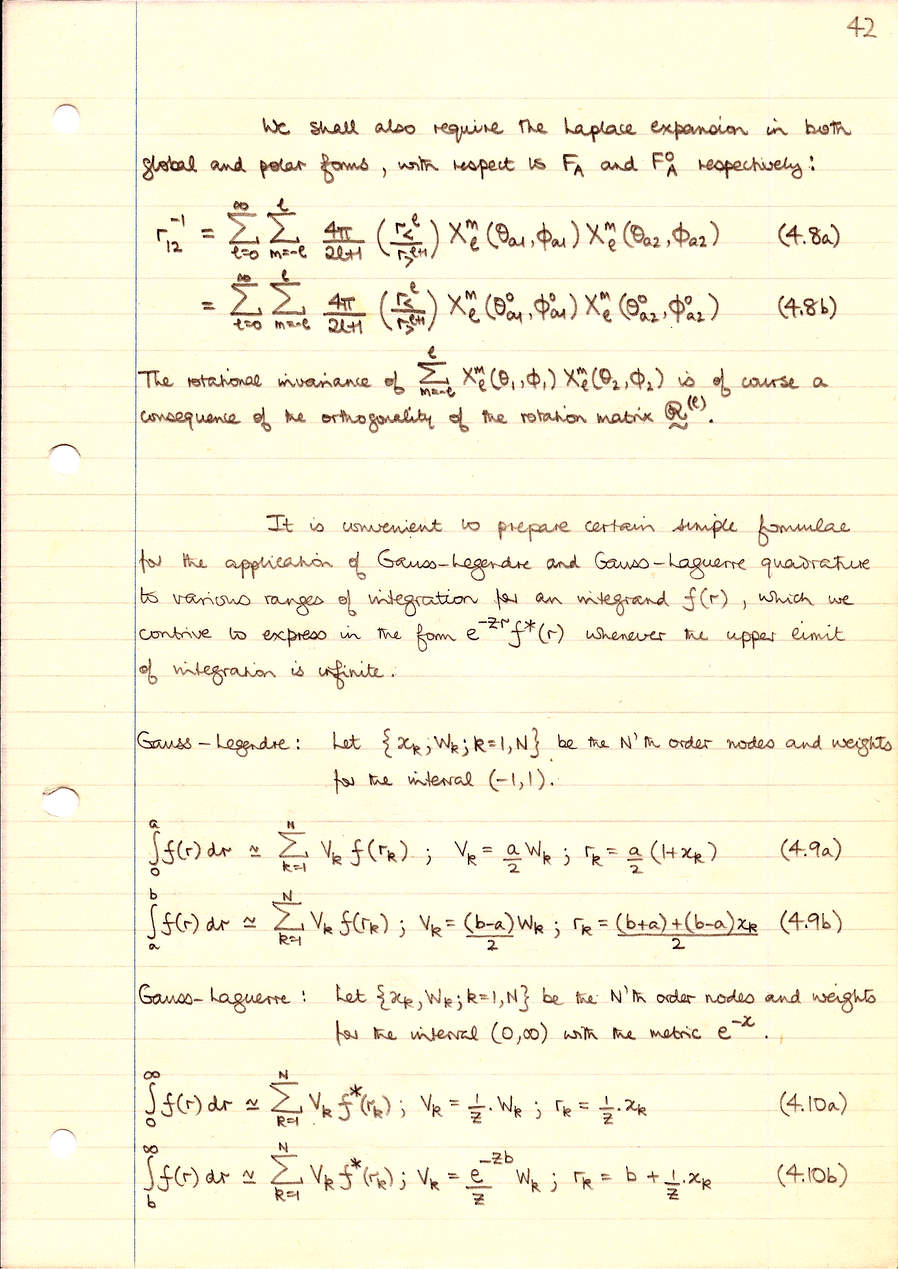 42
We shall also require the Laplace expansion in both
global and polar forms, with respect to F_A and F_A^o respectively:
r_12^-1 = ∑_{l=0}^{∞} ∑_{m=-l}^{l} 4π/(2l+1) (r_<^l / r_>^{l+1}) X_l^m (θ_a1, φ_a1) X_l^m (θ_a2, φ_a2) (4.8a)
= ∑_{l=0}^{∞} ∑_{m=-l}^{l} 4π/(2l+1) (r_<^l / r_>^{l+1}) X_l^m (θ_a1^o, φ_a1^o) X_l^m (θ_a2^o, φ_a2^o) (4.8b)
The rotational invariance of ∑_{m=-l}^{l} X_l^m (θ_1, φ_1) X_l^m (θ_2, φ_2) is of course a
consequence of the orthogonality of the rotation matrix R^(l).
It is convenient to prepare certain simple formulae
for the application of Gauss-Legendre and Gauss-Laguerre quadrature
to various ranges of integration for an integrand f(r), which we
contrive to express in the form e^{-zr} f*(r) whenever the upper limit
of integration is infinite.
Gauss-Legendre: Let {x_k; W_k; k=1,N} be the N'th order nodes and weights
for the interval (-1,1).
∫_0^a f(r) dr ≃ ∑_{k=1}^{N} V_k f(r_k) ; V_k = a/2 W_k ; r_k = a/2 (1+x_k) (4.9a)
∫_a^b f(r) dr ≃ ∑_{k=1}^{N} V_k f(r_k) ; V_k = (b-a)/2 W_k ; r_k = ((b+a)+(b-a)x_k)/2 (4.9b)
Gauss-Laguerre: Let {x_k, W_k; k=1,N} be the N'th order nodes and weights
for the interval (0,∞) with the metric e^{-x}.
∫_0^∞ f(r) dr ≃ ∑_{k=1}^{N} V_k f*(r_k) ; V_k = 1/z . W_k ; r_k = 1/z . x_k (4.10a)
∫_b^∞ f(r) dr ≃ ∑_{k=1}^{N} V_k f*(r_k) ; V_k = e^{-zb}/z W_k ; r_k = b + 1/z . x_k (4.10b)